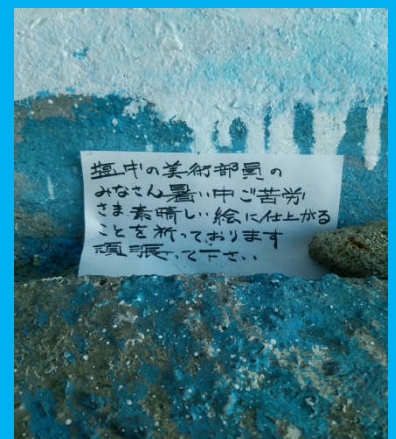 塩中の美術部員の
みなさん暑い中ご苦労
さま素晴しい絵に仕上がる
ことを祈っております
頑張って下さい